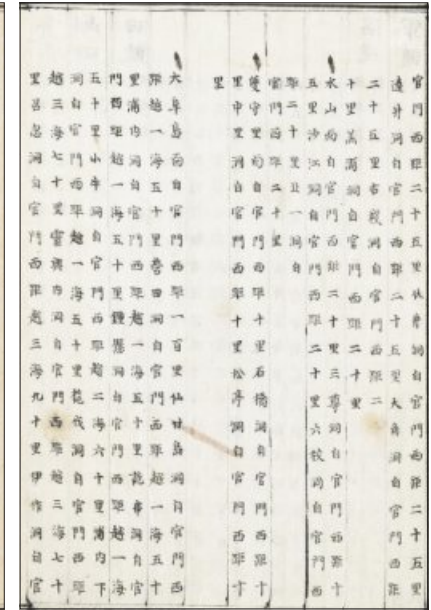 官門西距二十五里伏洞自官門西距二十五里
井洞自官門西距二十五里大角洞自官門西距
二十五里古洞自官門西距二
十里洞自官門西距二十里
水山面自官門西距二十里三尊洞自官門西距十
五里沙江洞自官門西距二十里六校洞自官門西
距二十里丑一洞自
官門西距二十里
雙守里面自官門西距十里石橋洞自官門西距十
里中里洞自官門西距十里松亭洞自官門西距十
里
大阜島面自官門西距一百里仙甘島洞自官門西
距越一海五十里營田洞自官門西距越一海五十
里浦內洞自官門西距越一海五十里龍串洞自官
門西距越一海五十里鐘懸洞自官門西距越一海
五十里小牛洞自官門西距越二海六十里浦內下
洞自官門西距越一海五十里伐洞自官門西距
越三海七十里靈興內洞自官門西距越三海七十
里洞自官門西距越三海九十里伊作洞自官